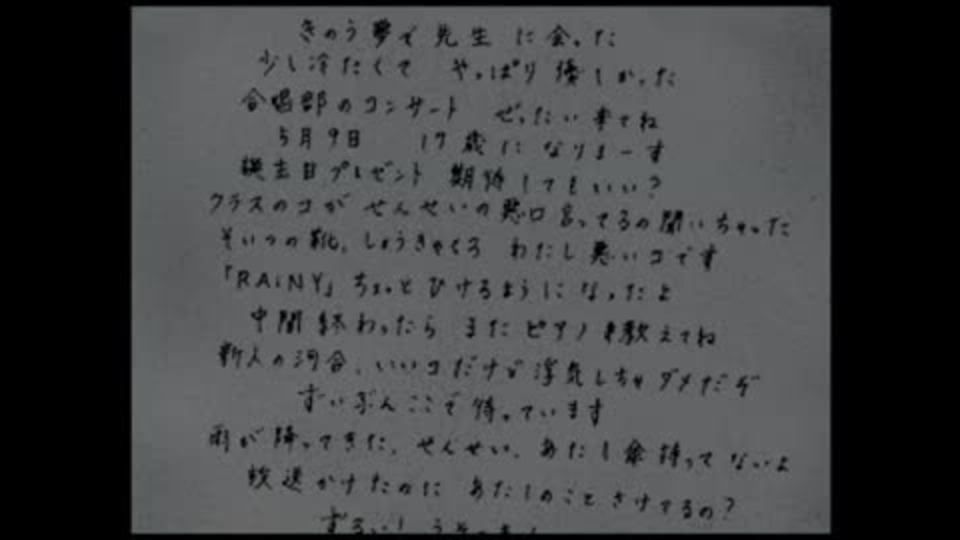 きのう夢で 先生 に会った
少し冷たくて やっぱり 優しかった
合唱部のコンサート ぜったい来てね
5月9日 17歳になりまーす
誕生日プレゼント 期待してもいい?
クラスのコが せんせいの悪口言ってるの聞いちゃった
そいつの靴、しょうきゃくろ わたし悪いコです
「RAiNY」ちょっとひけるようになったよ
中間終わったら またピアノ教えてね
新人の河合、いいコだけど浮気しちゃダメだぞ
ずいぶんここで待っています
雨が降ってきた、せんせい、あたし傘持ってないよ
放送かけたのに あたしのことさけてるの?
ずるい! うそつき!